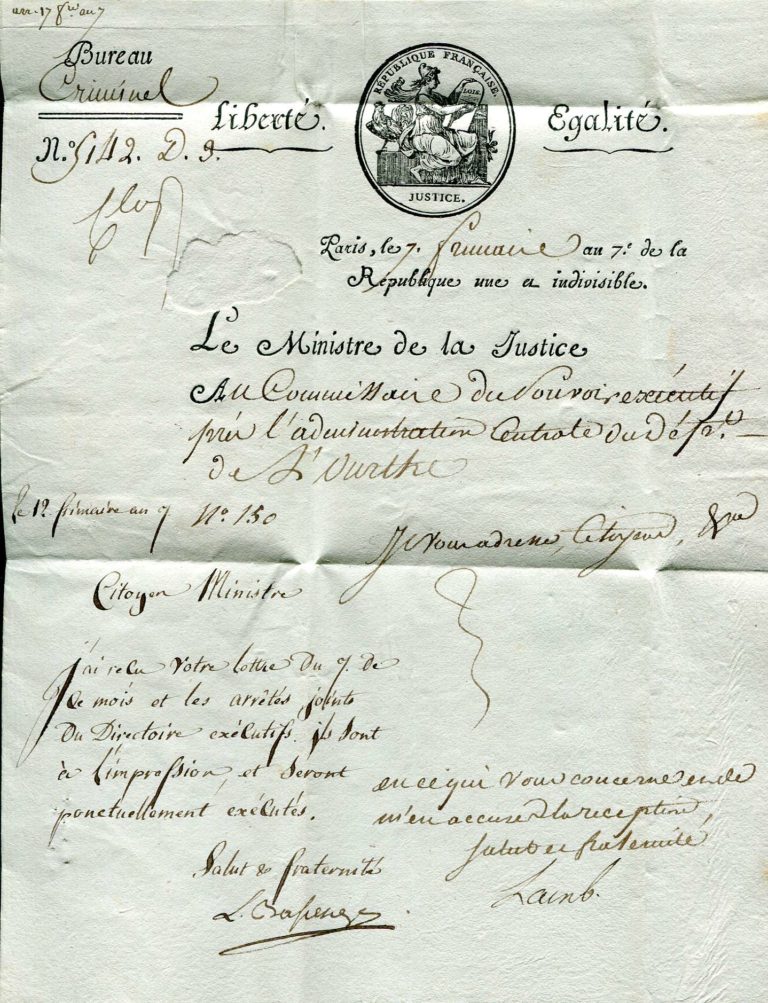 arr. 17 fre an 7
Bureau
Criminel
Liberté.
RÉPUBLIQUE FRANÇAISE.
LOIX.
JUSTICE.
Egalité.
N.º 5142. D. 9.
Paris, le 7. frimaire an 7.e de la
République une et indivisible.
Le Ministre de la Justice
Au Commissaire du Pouvoir exécutif
près l'administration Centrale du dép.t
de l'Ourthe
le 12 frimaire an 7 Nº 150
Je vous adresse, Citoyens,
Citoyen Ministre
j'ai reçu votre lettre du 7. de
ce mois et les arrêtés joints
du Directoire exécutifs. ils sont
à l'impression, et seront
ponctuellement exécutés.
Salut & fraternité
en ce qui vous concerne et de
m'en accuser la reception,
salut et fraternité
Lamb.